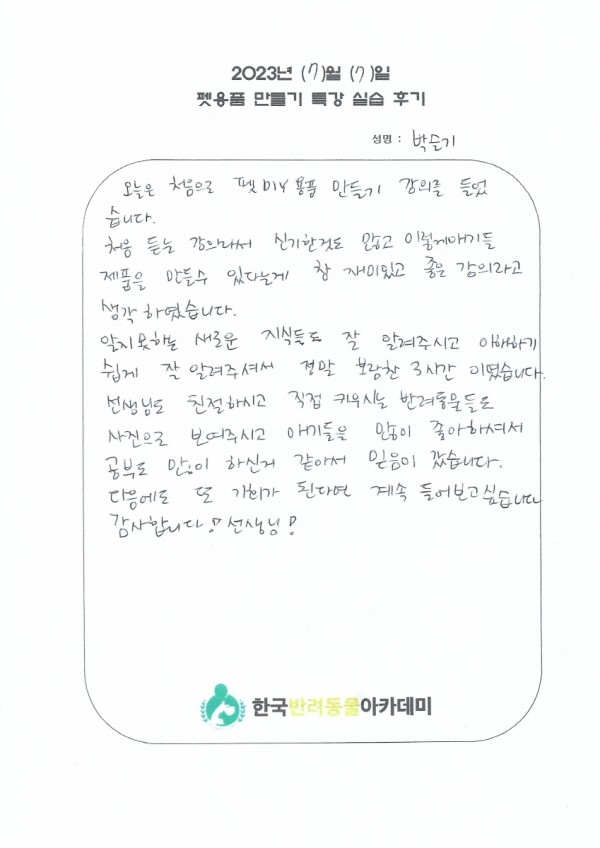 2023년 (7)월 (7)일
펫용품 만들기 특강 실습 후기
성명 : 박슬기
오늘은 처음으로 펫DIY 용품 만들기 강의를 들었
습니다.
처음 듣는 강의라서 신기한것도 많고 이렇게애기들
제품을 만들수 있다는게 참 재미있고 좋은 강의라고
생각 하였습니다.
알지못하는 새로운 지식들도 잘 알려주시고 이해하기
쉽게 잘 알려주셔서 정말 보람찬 3시간 이였습니다.
선생님도 친절하시고 직접 키우시는 반려동물들도
사진으로 보여주시고 애기들을 많이 좋아하셔서
공부도 많이 하신거 같아서 믿음이 갔습니다.
다음에도 또 기회가 된다면 계속 들어보고싶습니다
감사합니다! 선생님!
한국반려동물아카데미